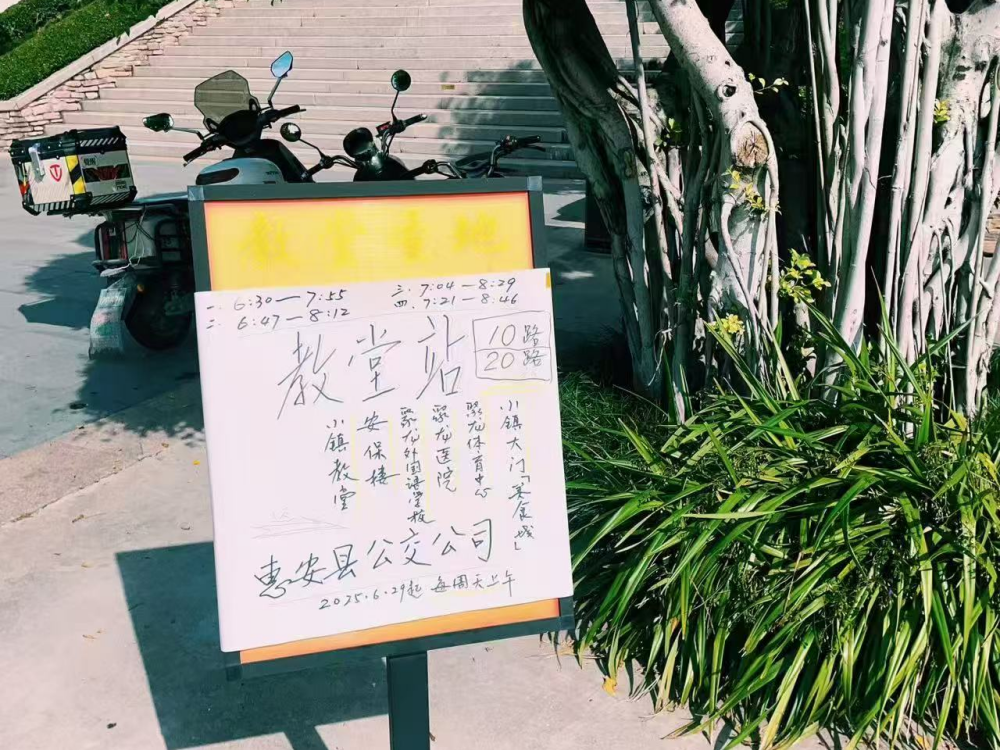 教堂重地
一. 6:30—7:55
二. 6:47—8:12
三. 7:04—8:29
四. 7:21—8:46
教堂站
10路
20路
小镇教堂
安保楼
聚龙外国语学校
聚龙医院
聚龙体育中心
小镇大门「美食城」
惠安县公交公司
2025.6.29起 每周天上午